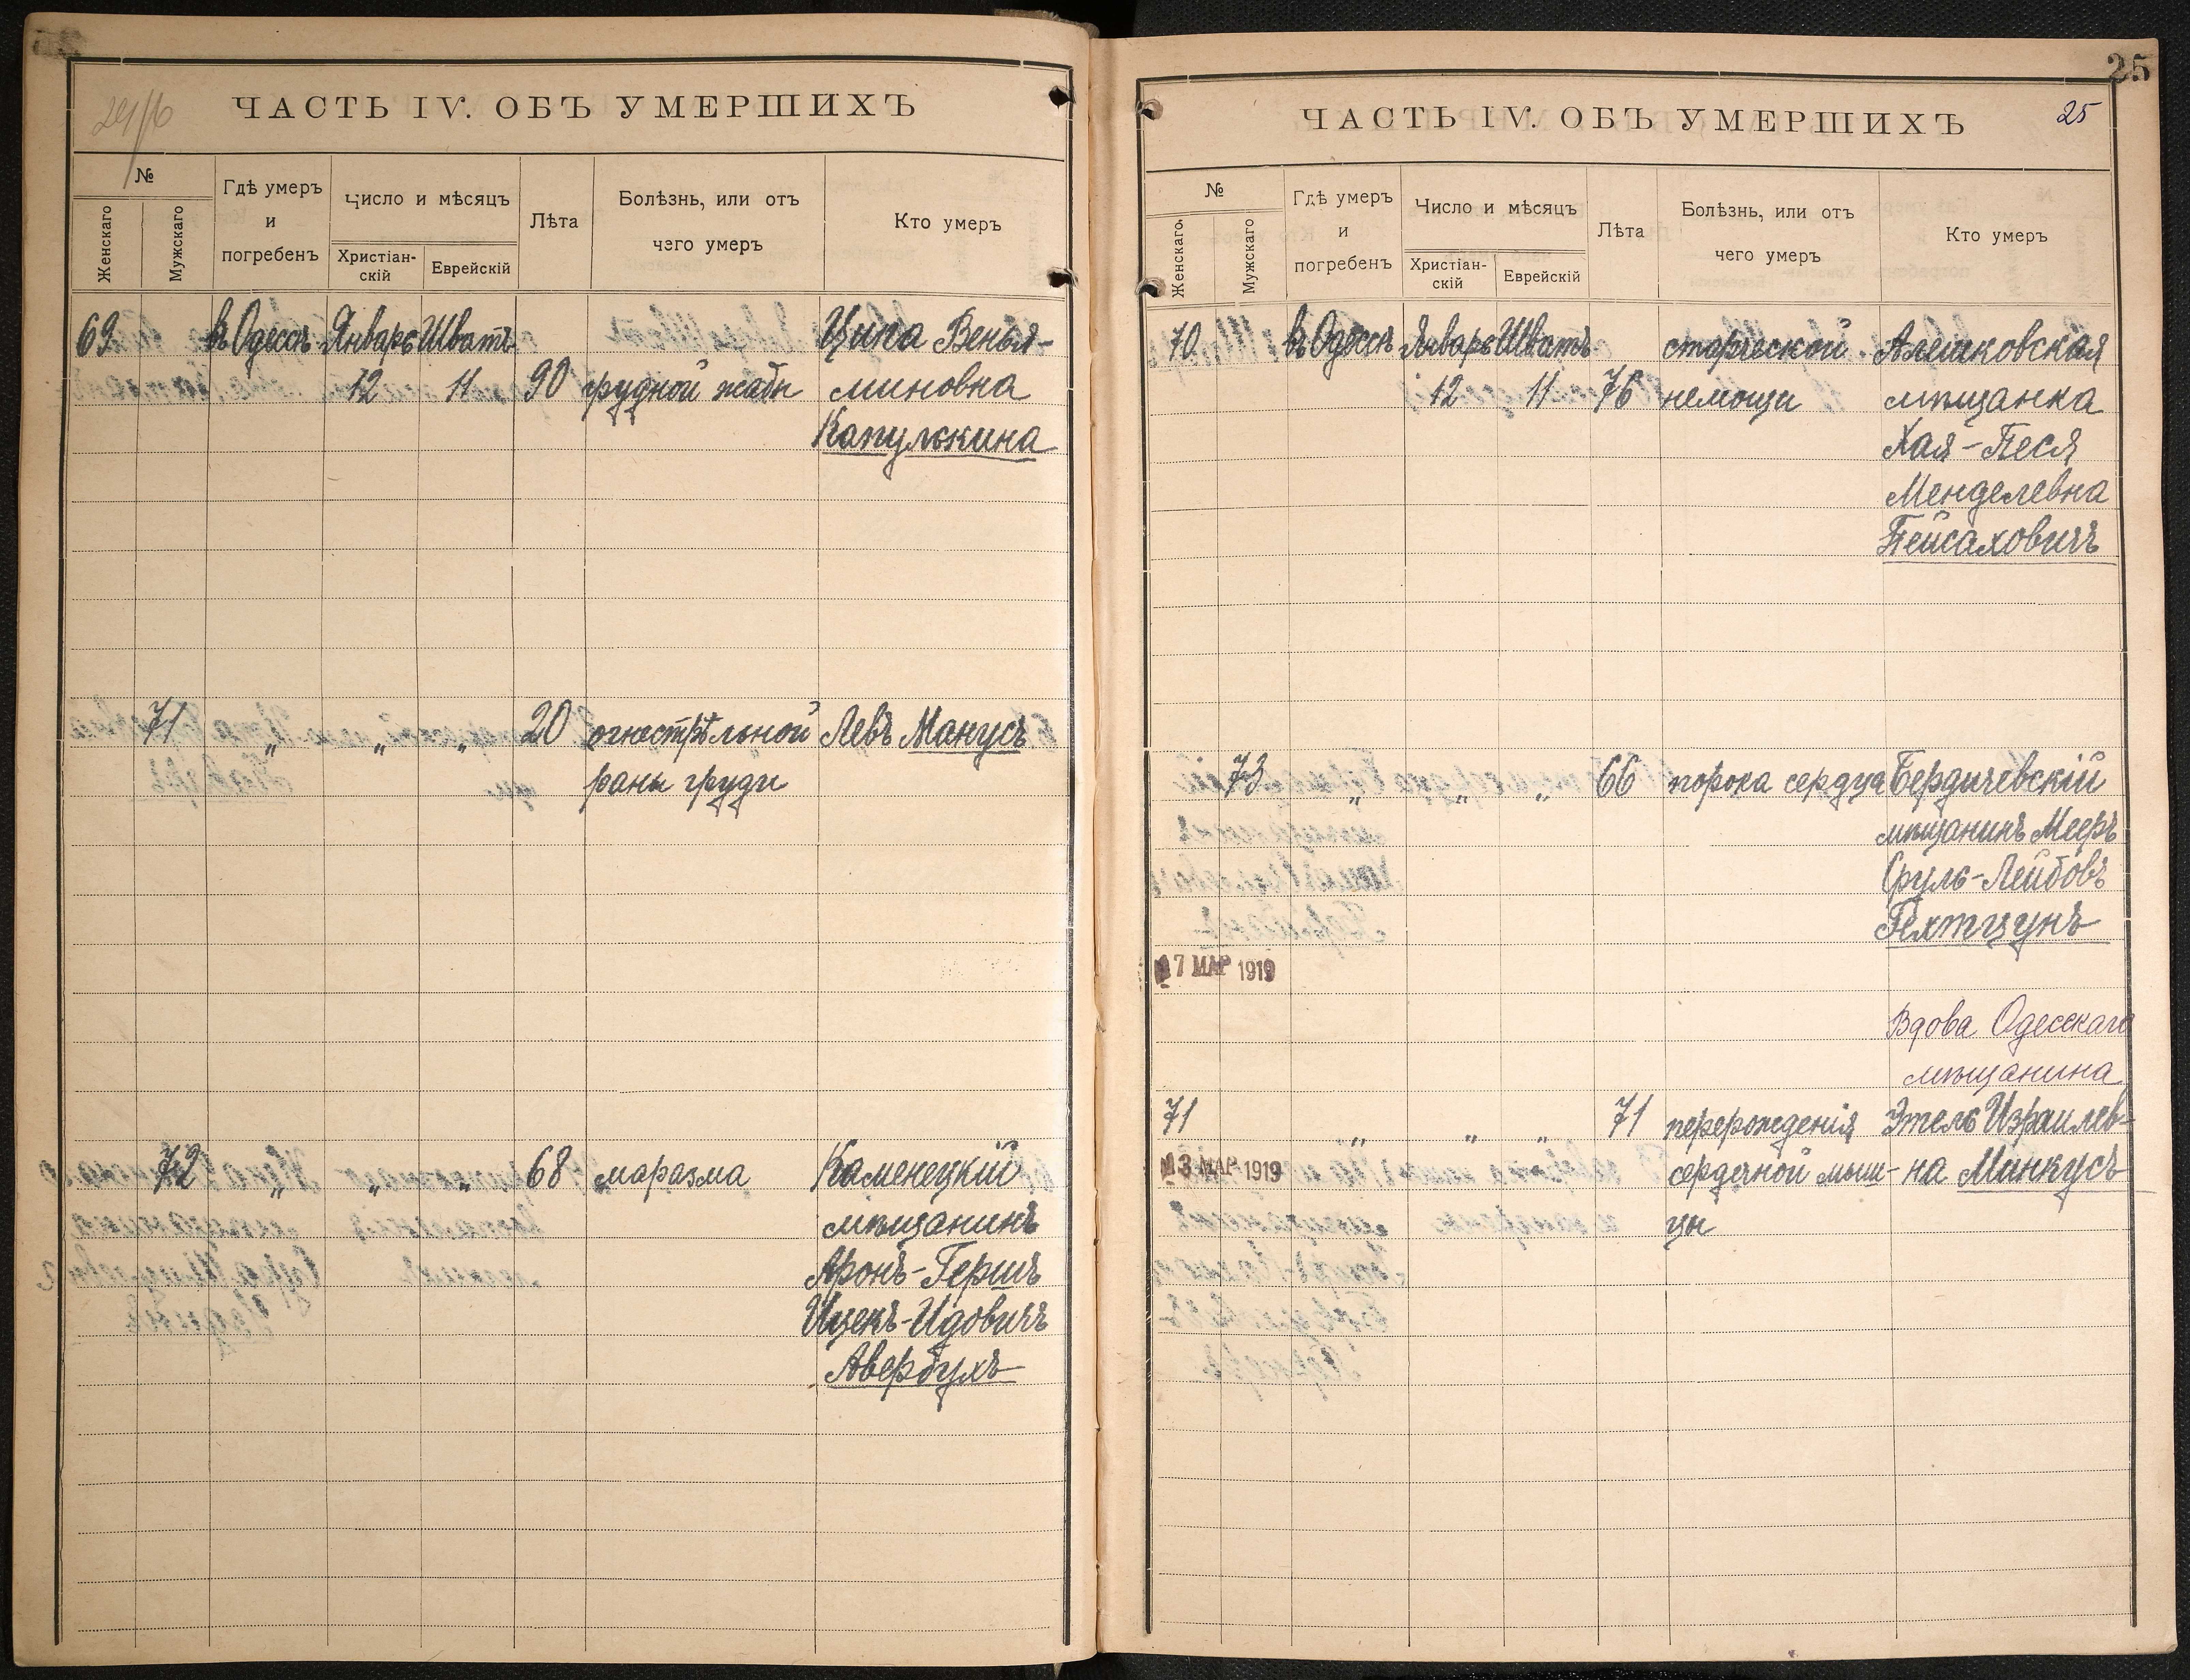 ЧАСТЬ IV. ОБЪ УМЕРШИХЪ
№
Женскаго
Мужскаго
Гдѣ умеръ
и
погребенъ
Число и мѣсяцъ
Христіан-
скій
Еврейскій
Лѣта
Болѣзнь, или отъ
чего умеръ
Кто умеръ
69 въ Одессѣ Январь Шватъ Ципа Венья-
12 11 90 грудной жабы миновна
Капулькина
71 „ „ „ 20 огнестрѣльной Левъ Манусъ
раны груди
72 „ „ „ 68 маразма Каменецкій
мѣщанинъ
Аронъ-Гершъ
Ицекъ-Идовичъ
Авербухъ
25
ЧАСТЬ IV. ОБЪ УМЕРШИХЪ 25
№
Женскаго
Мужскаго
Гдѣ умеръ
и
погребенъ
Число и мѣсяцъ
Христіан-
скій
Еврейскій
Лѣта
Болѣзнь, или отъ
чего умеръ
Кто умеръ
70 въ Одессѣ Январь Шватъ старческой Алешковская
12 11 76 немощи мѣщанка
Хая-Песя
Менделевна
Пейсаховичъ
73 „ „ „ 66 порока сердца Бердичевскій
мѣщанинъ Мееръ
Сруль-Лейбовъ
Гехтцунъ
7 МАР 1919
Вдова Одесскаго
мѣщанина
71 „ „ „ 71 перерожденія Этель Израилев-
13 МАР 1919 сердечной мыш- на Минкусъ
цы